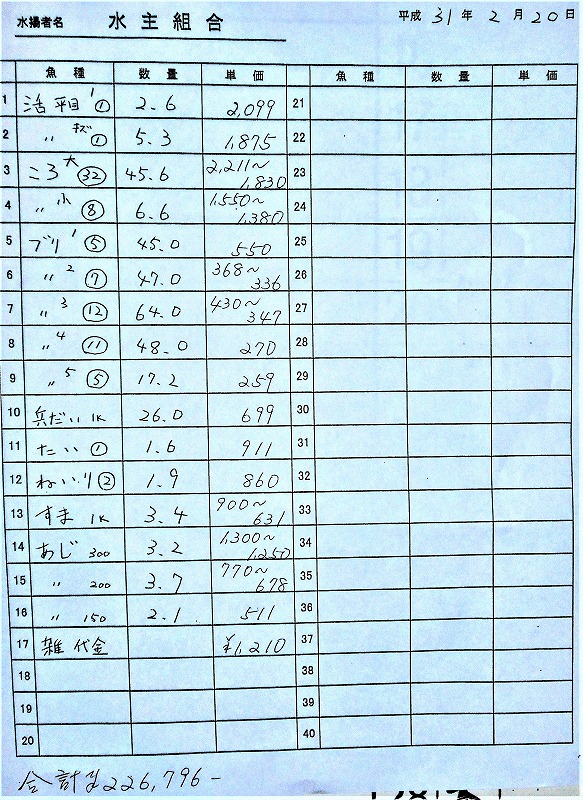 水揚者名 水主組合 平成 31 年 2 月 20 日
魚種 数量 単価 魚種 数量 単価
1 活平目 1 ① 2.6 2,099 21
2 〃 キズ ① 5.3 1,875 22
3 ころ 大 ㉜ 45.6 2,211〜1,830 23
4 〃 小 ⑧ 6.6 1,550〜1,380 24
5 ブリ 1 ⑤ 45.0 550 25
6 〃 2 ⑦ 47.0 368〜336 26
7 〃 3 ⑫ 64.0 430〜347 27
8 〃 4 ⑪ 48.0 270 28
9 〃 5 ⑤ 17.2 259 29
10 兵だい 1K 26.0 699 30
11 たい ① 1.6 911 31
12 ねいり ② 1.9 860 32
13 すま 1K 3.4 900〜631 33
14 あじ 300 3.2 1,300〜1,250 34
15 〃 200 3.7 770〜678 35
16 〃 150 2.1 511 36
17 雑代金 ¥1,210 37
18 38
19 39
20 40
合計 ¥226,796-